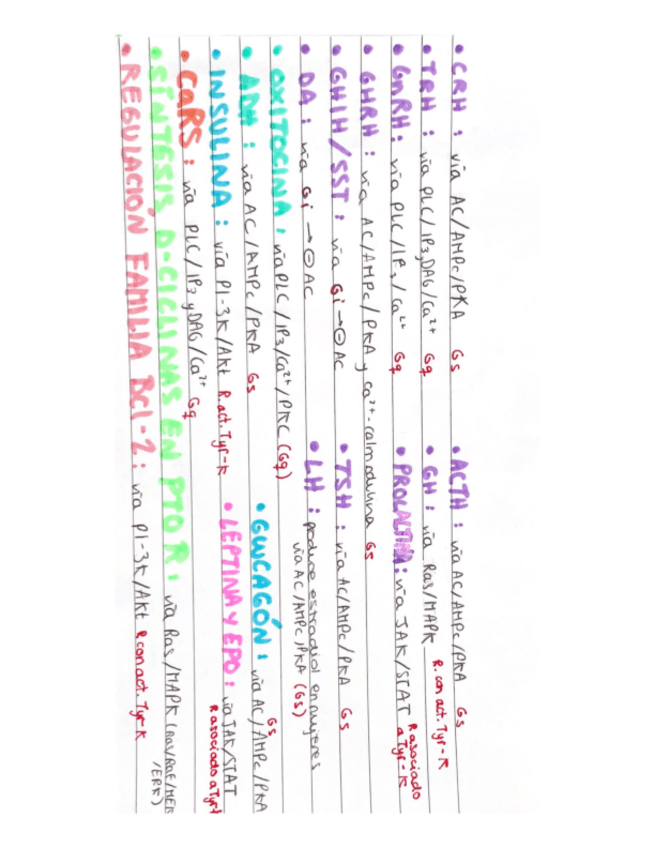 • CRH : vía AC/AMPc/PKA Gs • ACTH : vía AC/AMPc/PKA Gs
• TRH : vía PLC/IP3,DAG/Ca²⁺ Gq • GH : vía Ras/MAPK R. con act. Tyr-K
• GnRH : vía PLC/IP3/Ca²⁺ Gq • PROLACTINA : vía JAK/STAT R asociado a Tyr-K
• GHRH : vía AC/AMPc/PKA y Ca²⁺-calmodulina Gs
• GHIH/SST : vía Gi → ⊖ AC • TSH : vía AC/AMPc/PKA Gs
• DA : vía Gi → ⊖ AC • LH : produce estradiol en mujeres
vía AC/AMPc/PKA (Gs)
• OXITOCINA : vía PLC/IP3/Ca²⁺/PKC (Gq)
• ADH : vía AC/AMPc/PKA Gs • GLUCAGÓN : vía AC/AMPc/PKA Gs
• INSULINA : vía PI-3K/Akt R.act. Tyr-K • LEPTINA Y EPO : vía JAK/STAT
R asociado a Tyr-K
• CaRS : vía PLC/IP3 y DAG/Ca²⁺ Gq
• SÍNTESIS D-CICLINAS EN PTO R : vía Ras/MAPK (Ras/Raf/MEK
/ERK)
• REGULACIÓN FAMILIA BCl-2 : vía PI-3K/Akt R con act. Tyr-K